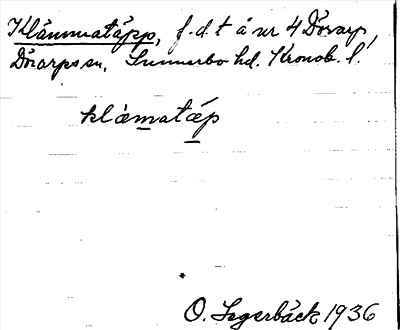 Klämmatäpp, f.d. t å nr 4 Dörarp,
Dörarps sn, Sunnerbo hd. Kronob. l.
klämatäp
O. Segerbäck 1936